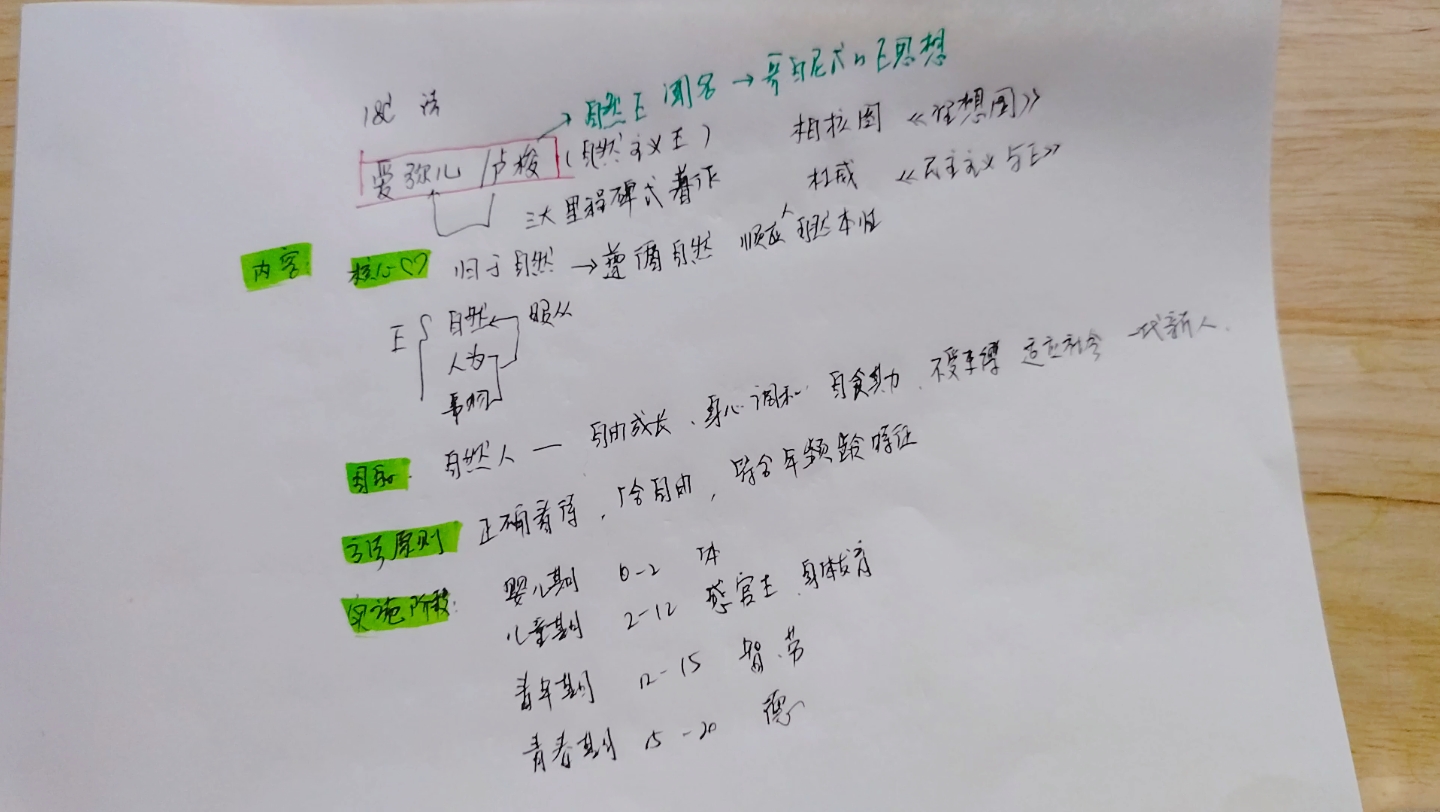 18C 法
→ 自然E 闻名 → 哥白尼式的E思想
爱弥儿 卢梭 (自然主义E) 柏拉图 《理想国》
三大里程碑式著作 杜威 《民主主义与E》
内容: 核心♡ 归于自然 → 遵循自然 顺应人自然本性
E { 自然 ← 服从
人为
事物
目标. 自然人 — 自由成长、身心调和 自食其力、不受束缚 适应社会 一代新人.
方法原则 正确看待, 给自由, 符合年龄特征
实施阶段: 婴儿期 0-2 体
儿童期 2-12 感官E、身体发育
青年期 12-15 智、劳
青春期 15-20 德